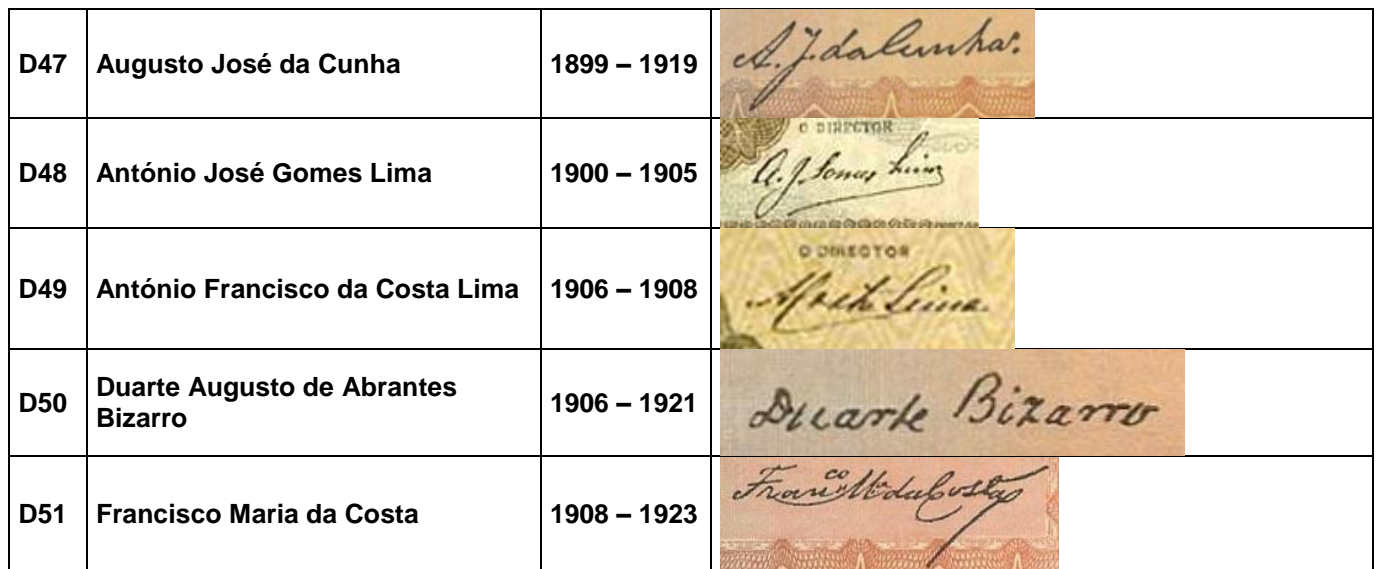 D47 Augusto José da Cunha 1899 – 1919 A. J. da Cunha.
O DIRECTOR
D48 António José Gomes Lima 1900 – 1905 A. J. Gomes Lima
O DIRECTOR
D49 António Francisco da Costa Lima 1906 – 1908 Lima
D50 Duarte Augusto de Abrantes
Bizarro 1906 – 1921 Duarte Bizarro
D51 Francisco Maria da Costa 1908 – 1923 Franco Ma da Costa